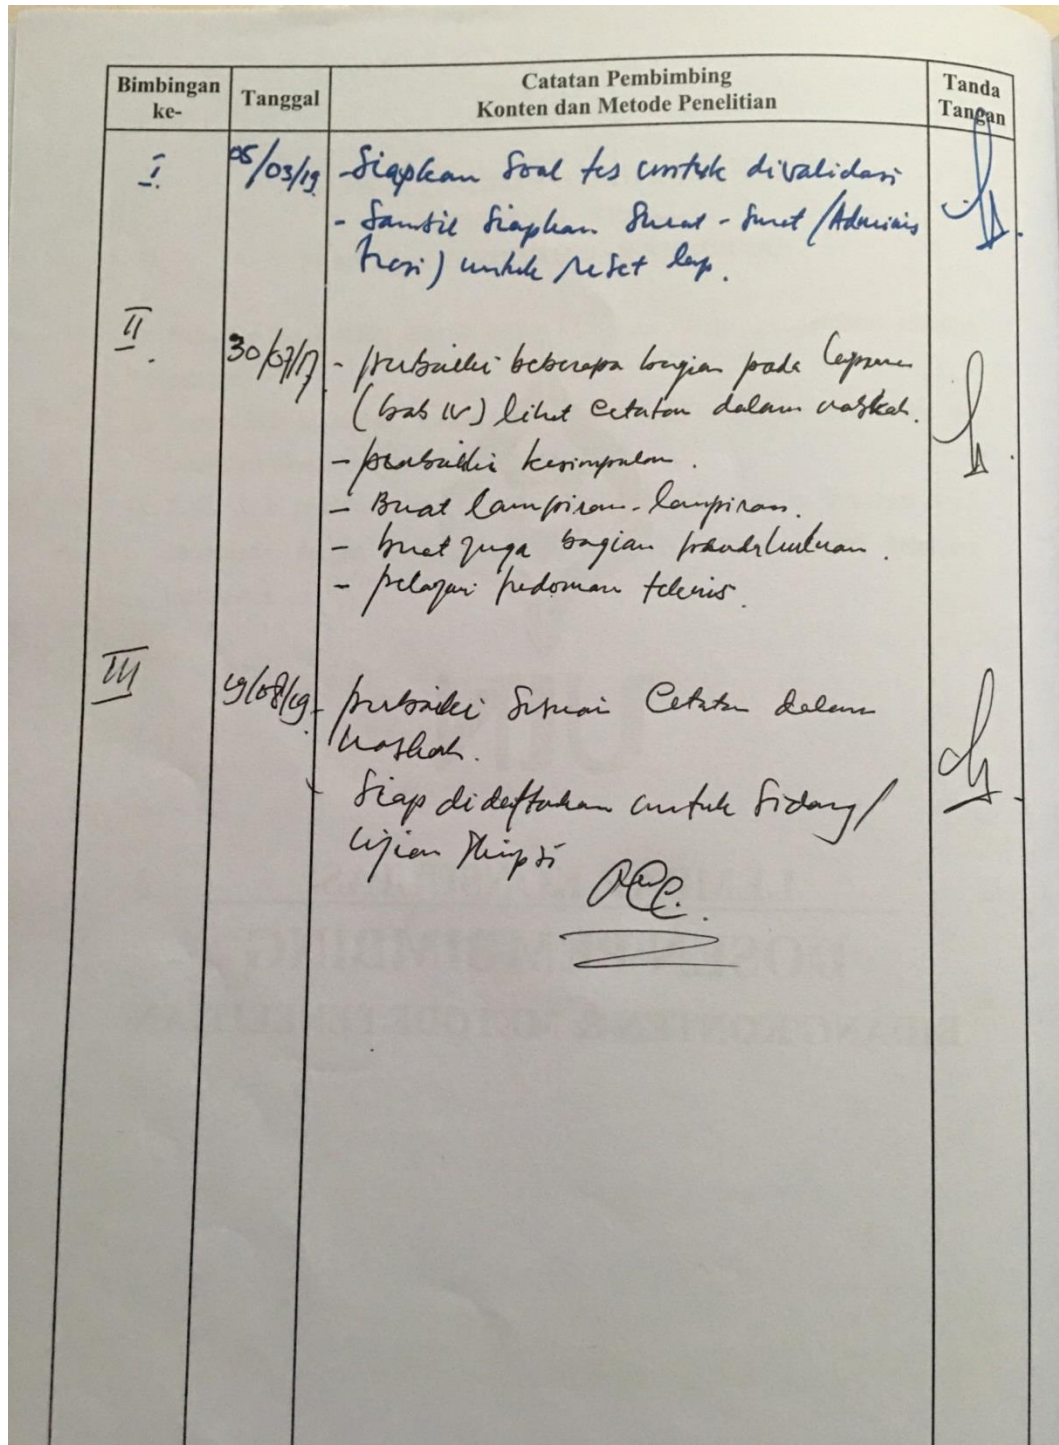 Bimbingan ke-
Tanggal
Catatan Pembimbing
Konten dan Metode Penelitian
Tanda Tangan
I
05/03/19
- Siapkan Soal tes untuk divalidasi
- Sambil Siapkan Surat - Surat (Adminis
trasi) untuk riset lap.
II.
30/07/19
- perbaiki beberapa bagian pada laporan
(bab IV) lihat Catatan dalam naskah.
- perbaiki kesimpulan.
- Buat lampiran-lampiran.
- buat juga bagian pendahuluan.
- pelajari pedoman teknis.
III
19/08/19
- perbaiki Sesuai Catatan dalam
naskah.
Siap didaftarkan untuk Sidang/
Ujian Skripsi
ACC.